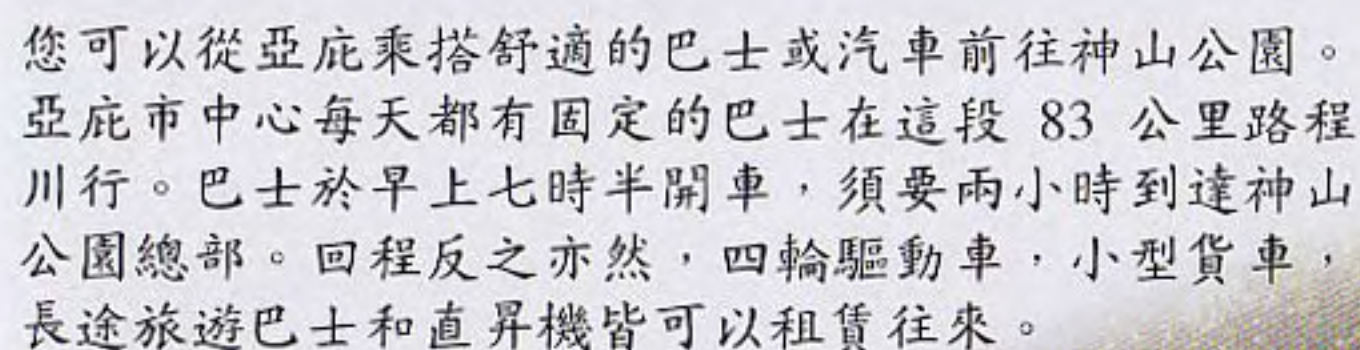 您可以從亞庇乘搭舒適的巴士或汽車前往神山公園。
亞庇市中心每天都有固定的巴士在這段 83 公里路程
川行。巴士於早上七時半開車，須要兩小時到達神山
公園總部。回程反之亦然，四輪驅動車，小型貨車，
長途旅遊巴士和直昇機皆可以租賃往來。